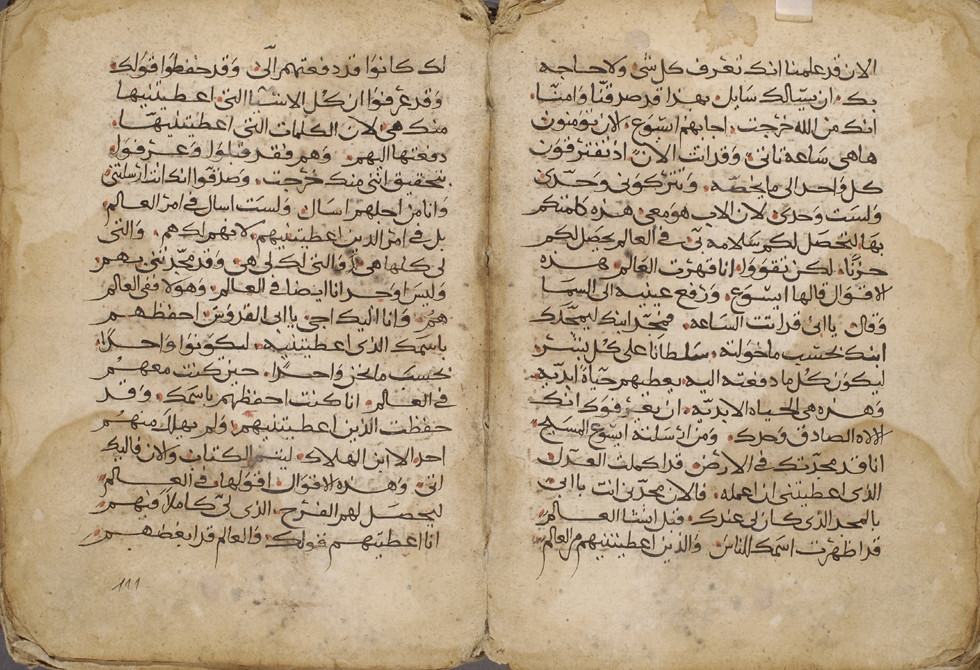 الان قد علمنا انك تعرف كل شي ولا حاجه
بك. ان يسالك سايل. بهذا قد صدقنا وامنا.
انك من الله خرجت. اجابهم ايسوع. الان تومنون
ها هي ساعه تاتي. وقد اتت الان. اذ تفترقون
كل واحد الى ما يخصه. وتتركوني وحدي
ولست وحدي. لان الاب هو معي. هذه كلمتكم
بها ليحصل لكم سلامه بي. في العالم يحصل لكم
حزنا. لكن تقووا. انا قهرت العالم. هذه
الاقوال قالها ايسوع. ورفع عينيه الى السما
وقال. يا ابي قد اتت الساعه. فمجد ابنك ليمجدك
ابنك. بحسب ما خولته. سلطانا على كل بشر.
ليكون كل ما دفعته اليه. يعطيهم حياة ابديه.
وهذه هي الحياه الابديه. ان يعرفوك انك
الالاه الصادق وحدك. ومن ارسلته ايسوع المسيح
انا قد مجدتك في الارض. قد اكملت العمل
الذي اعطيتني ان اعمله. فالان مجدني انت يا ابي
بالمجد الذي كان لي عندك. قبل انشا العالم.
قد اظهرت اسمك للناس. والذين اعطيتنيهم من العالم.
لك كانوا قد دفعتهم الي. وقد حفظوا قولك
وقد عرفوا ان كل الاشيا التي اعطيتنيها
منك هي. لان الكلمات التي اعطيتنيها.
دفعتها اليهم. وهم فقد قبلوا وعرفوا
بتحقيق انني منك خرجت. وصدقوا انك انت ارسلتني
وانا من اجلهم اسال. ولست اسال في امر العالم
بل في امر الذين اعطيتنيهم. لانهم لك هم. والتي
لي كلها هي لك والتي لك لي هي. وقد مجدتني بهم
وليس اوجد انا ايضا في العالم. وهولا ففي العالم
هم. وانا اليك اجي. يا ابي القدوس. احفظهم
باسمك الذي اعطيتنيه. ليكونوا واحدا.
بحسب ما نحن واحدا. حين كنت معهم
في العالم. انا كنت احفظهم باسمك. وقد
حفظت الذين اعطيتنيهم. ولم يهلك منهم
احد الا ابن الهلاك. ليتم الكتاب. والان فاليك
اتي. وهذه الاقوال. اقولها في العالم
ليحصل لهم الفرح. الذي لي كاملا فيهم
انا اعطيتهم قولك. والعالم قد ابغضهم.
111